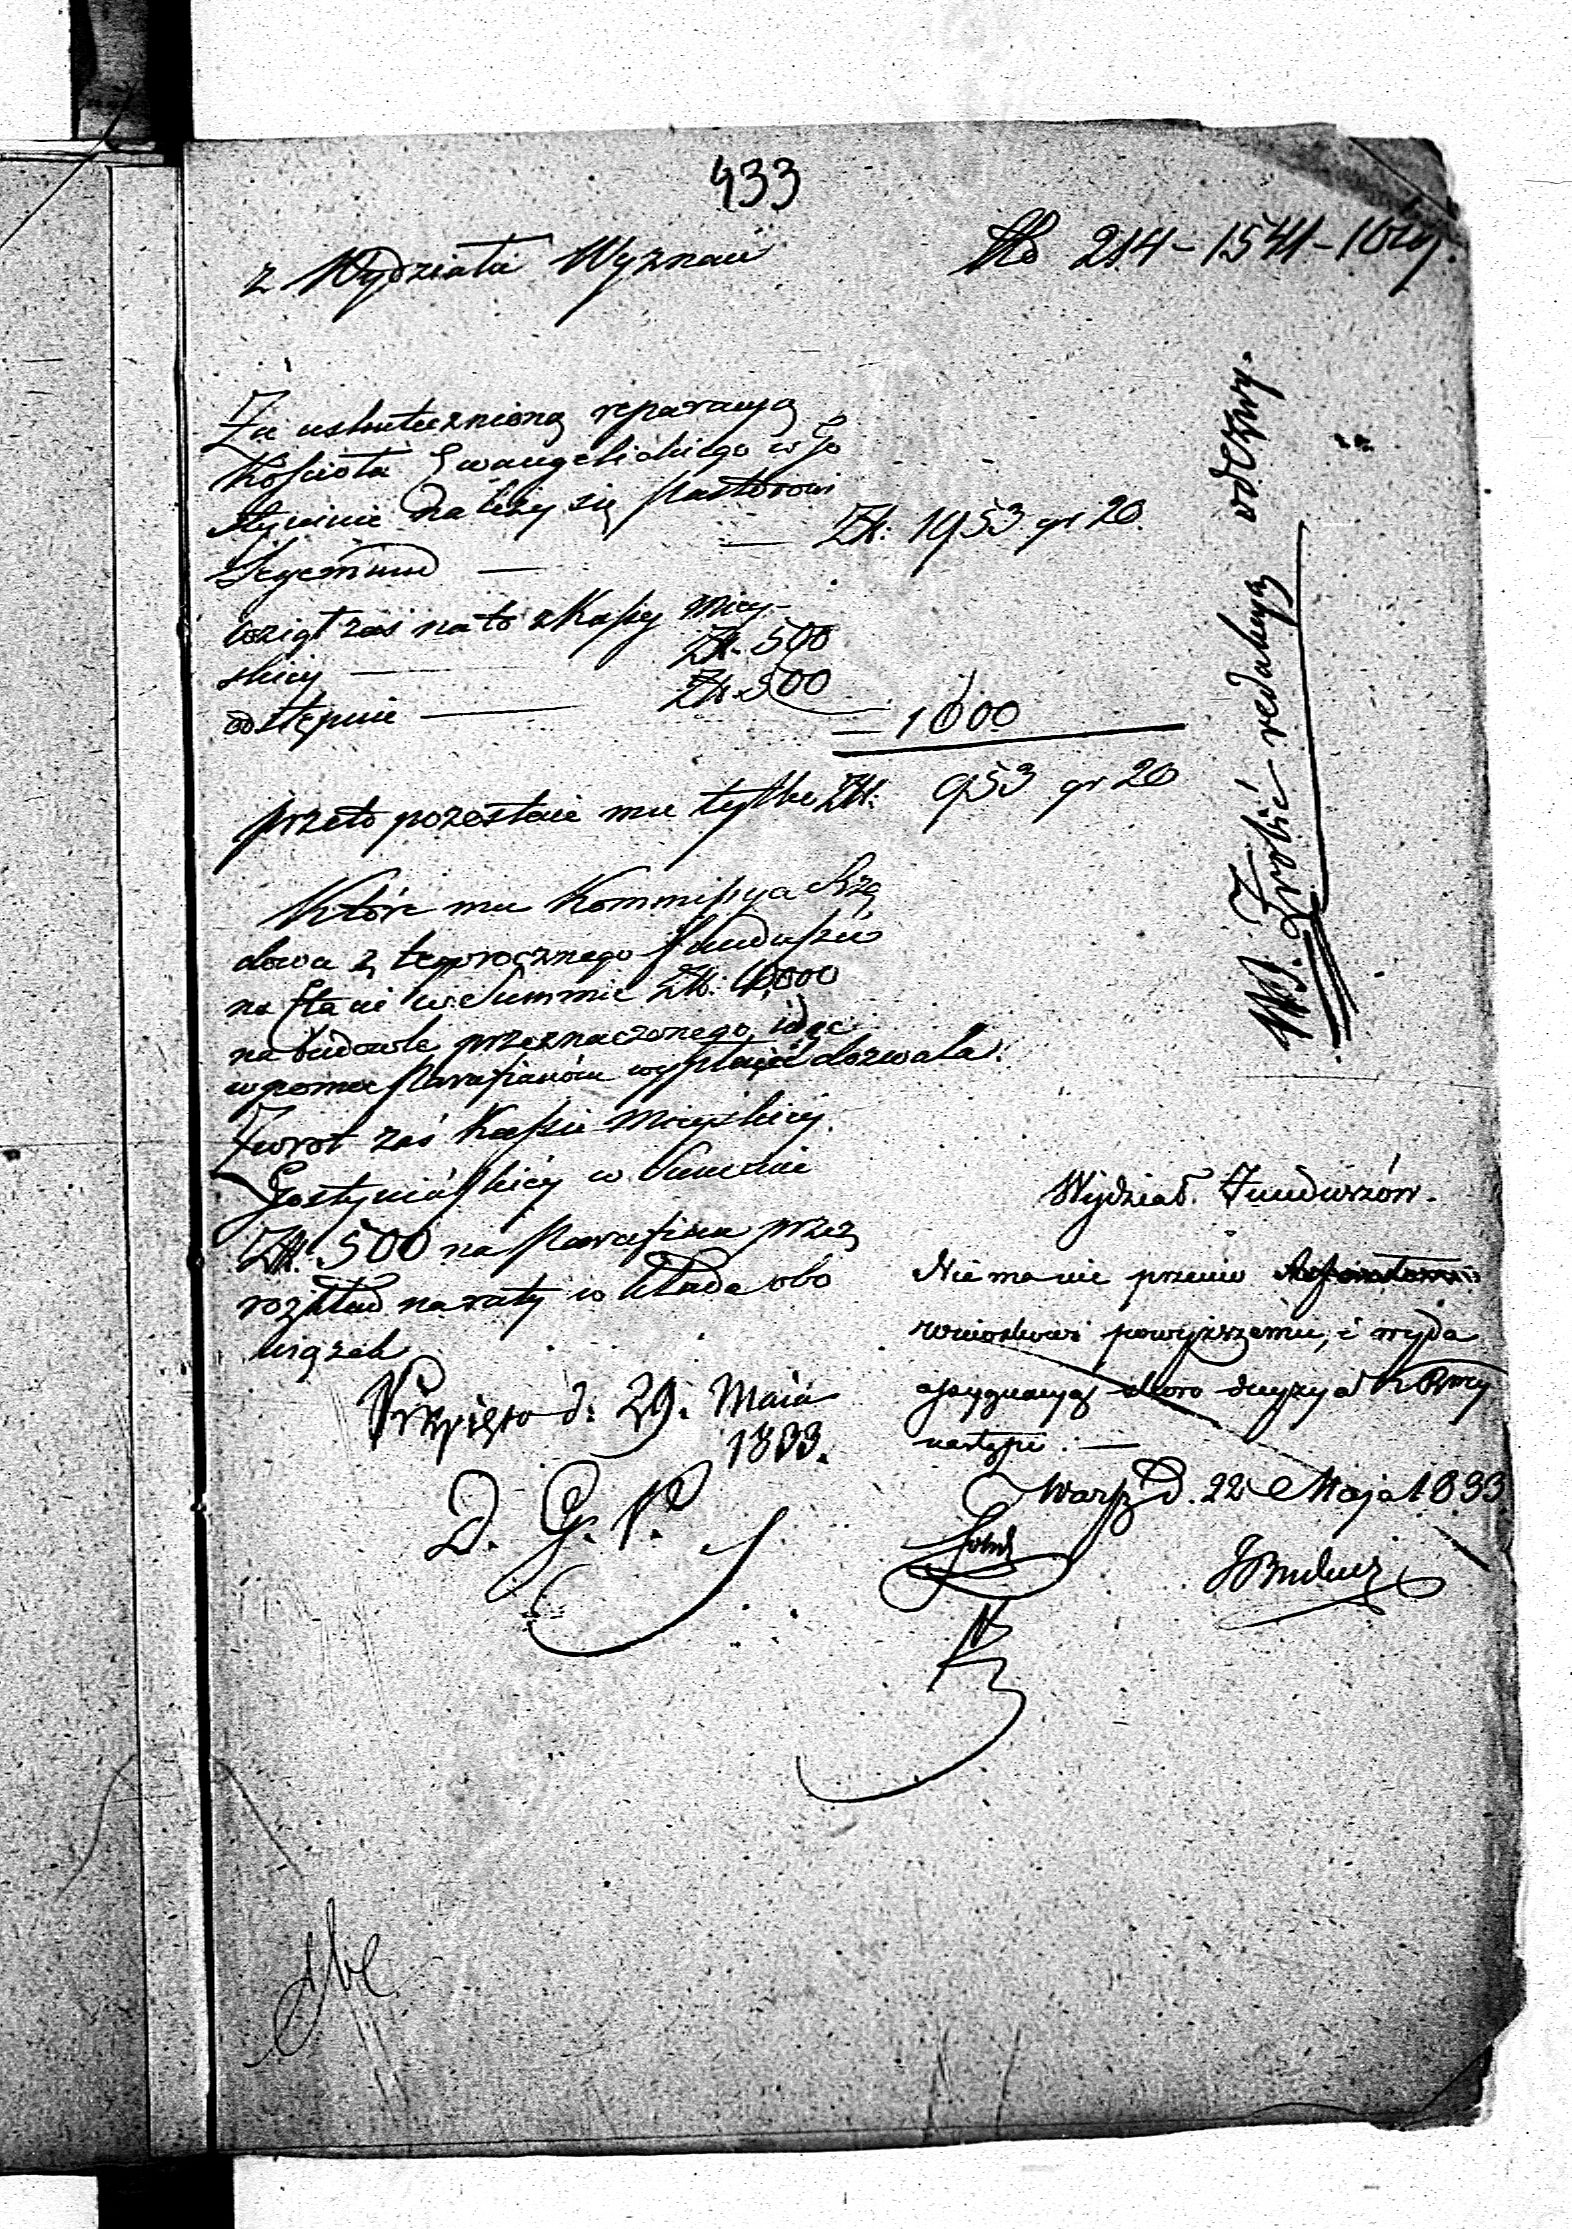 433
z Wydziału Wyznań
No 214-1541-
Za uskutecznioną reparacyą
Kościoła Ewangelickiego w Go
styninie należy się Pastorowi
Zł. 1953 gr 20.
wziął zaś na to z Kassy Miey-
skiey Zł. 500
odstępuie Zł. 500
1000
przeto pozostaie mu tylko Zł. 953 gr 20
Które mu Kommissya Rzą
dowa z tegorocznego funduszu
na Etacie w Summie Zł. 4,000
na budowle przeznaczonego, idąc
w pomoc Parafianom wypłacić dozwala.
Zwrot zaś Kassie Mieyskiey
Gostynińskiey w Summie
Zł. 500 na Parafian przez
rozkład na raty wkłada obo
wiązek
Przyięto d. 29. Maia
1833.
D. G. P.
WJ. Zrobić redakcyą odezwy.
Wydział Funduszów.
Nie ma nic przeciw
wnioskowi powyższemu, i wyda
assygnacyą skoro decyzya K Rząd
nastąpi. —
Warsz d. 22 Maja 1833